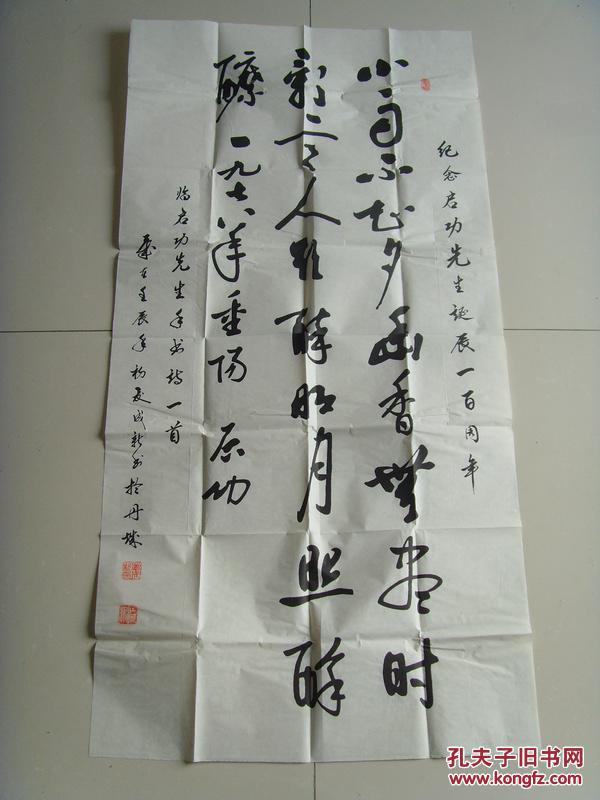 纪念启功先生诞辰一百周年
小 不知夕幽香無尽时
令人 醉明月照酴
醾 一九七八年重阳 启功
临启功先生手书诗一首
岁在壬辰年初夏成新书於丹城
孔夫子旧书网
www.kongfz.com